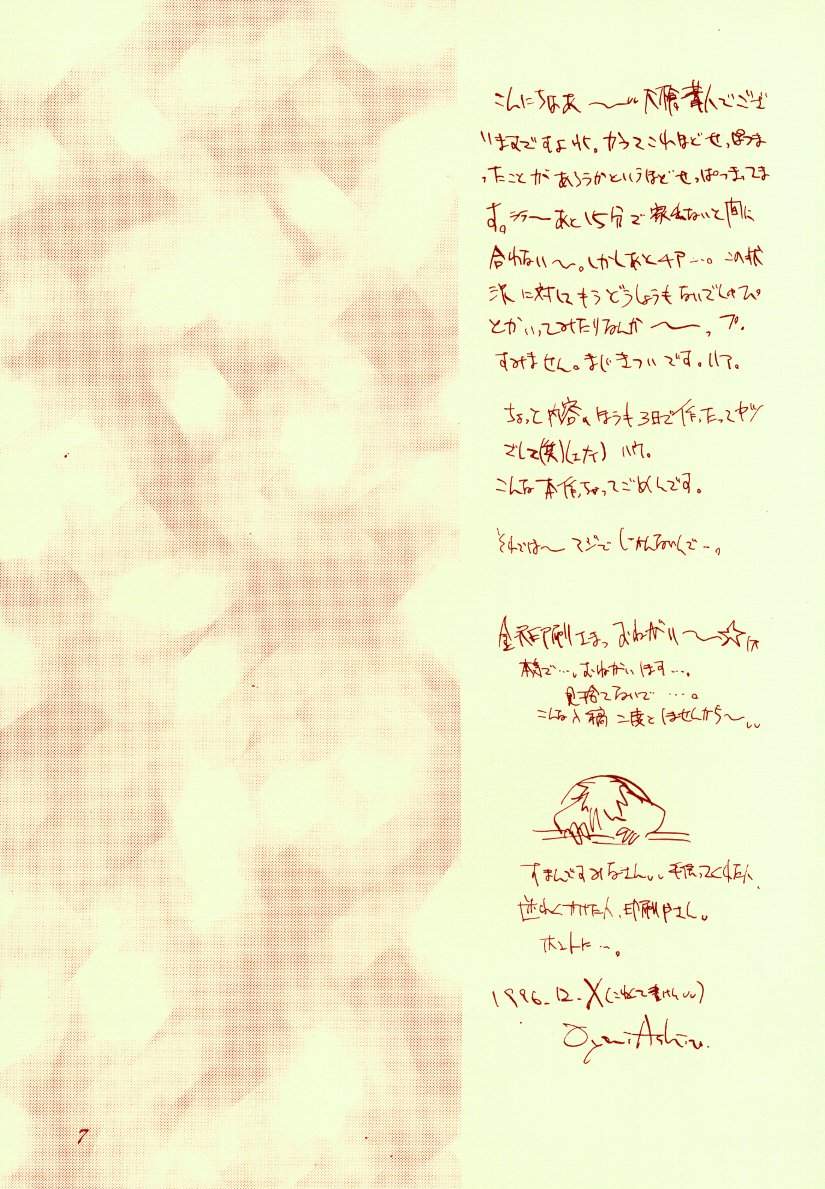 こんにちはあ〜 大槍葦人でござ
いますですよハイ。かつてこれほどせっぱつま
ったことがあろうかというほどせっぱつまってま
す。あと15分で家出ないと間に
合わない〜。しかしあと4P…。この状
況に対してもうどうしようもないでしゅぴ
とかいってみたりなんか〜っ プ。
すみません。まじきついです。ハア。
ちょっと内容のほうも3日で作ったってヤツ
でして(笑)
こんな本作っちゃってごめんです。
それでは〜 マジで じかんないんで〜。
金沢印刷さまっ おねがい〜☆
本気で…。おねがいします…。
見捨てないで…。
こんな入稿二度としませんから〜
すまんですみなさん 手伝ってくれた人、
迷わくかけた人、印刷やさん。
ホントに…。
1996.12.X
7